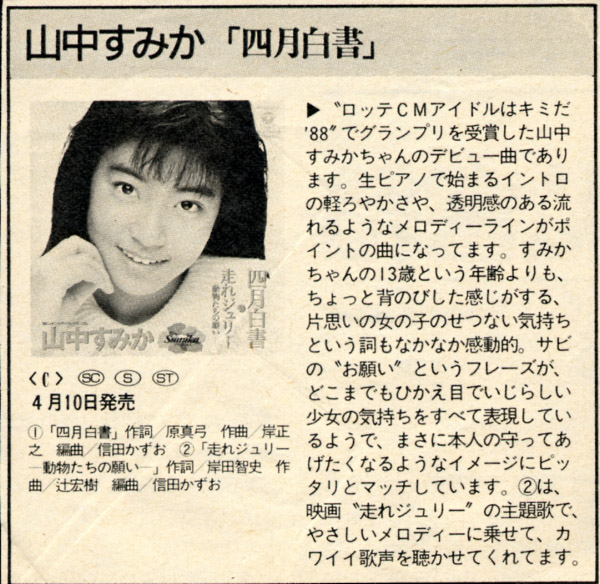 山中すみか「四月白書」
四月白書
走れジュリー
動物たちの願い
山中すみか
Sumika
〈C〉 SC S ST
4月10日発売
①「四月白書」作詞／原真弓　作曲／岸正
之　編曲／信田かずお　②「走れジュリー
―動物たちの願い―」作詞／岸田智史　作
曲／辻宏樹　編曲／信田かずお
▶〝ロッテCMアイドルはキミだ
'88〟でグランプリを受賞した山中
すみかちゃんのデビュー曲であり
ます。生ピアノで始まるイントロ
の軽ろやかさや、透明感のある流
れるようなメロディーラインがポ
イントの曲になってます。すみか
ちゃんの13歳という年齢よりも、
ちょっと背のびした感じがする、
片思いの女の子のせつない気持ち
という詞もなかなか感動的。サビ
の〝お願い〟というフレーズが、
どこまでもひかえ目でいじらしい
少女の気持ちをすべて表現してい
るようで、まさに本人の守ってあ
げたくなるようなイメージにピッ
タリとマッチしています。②は、
映画〝走れジュリー〟の主題歌で、
やさしいメロディーに乗せて、カ
ワイイ歌声を聴かせてくれてます。